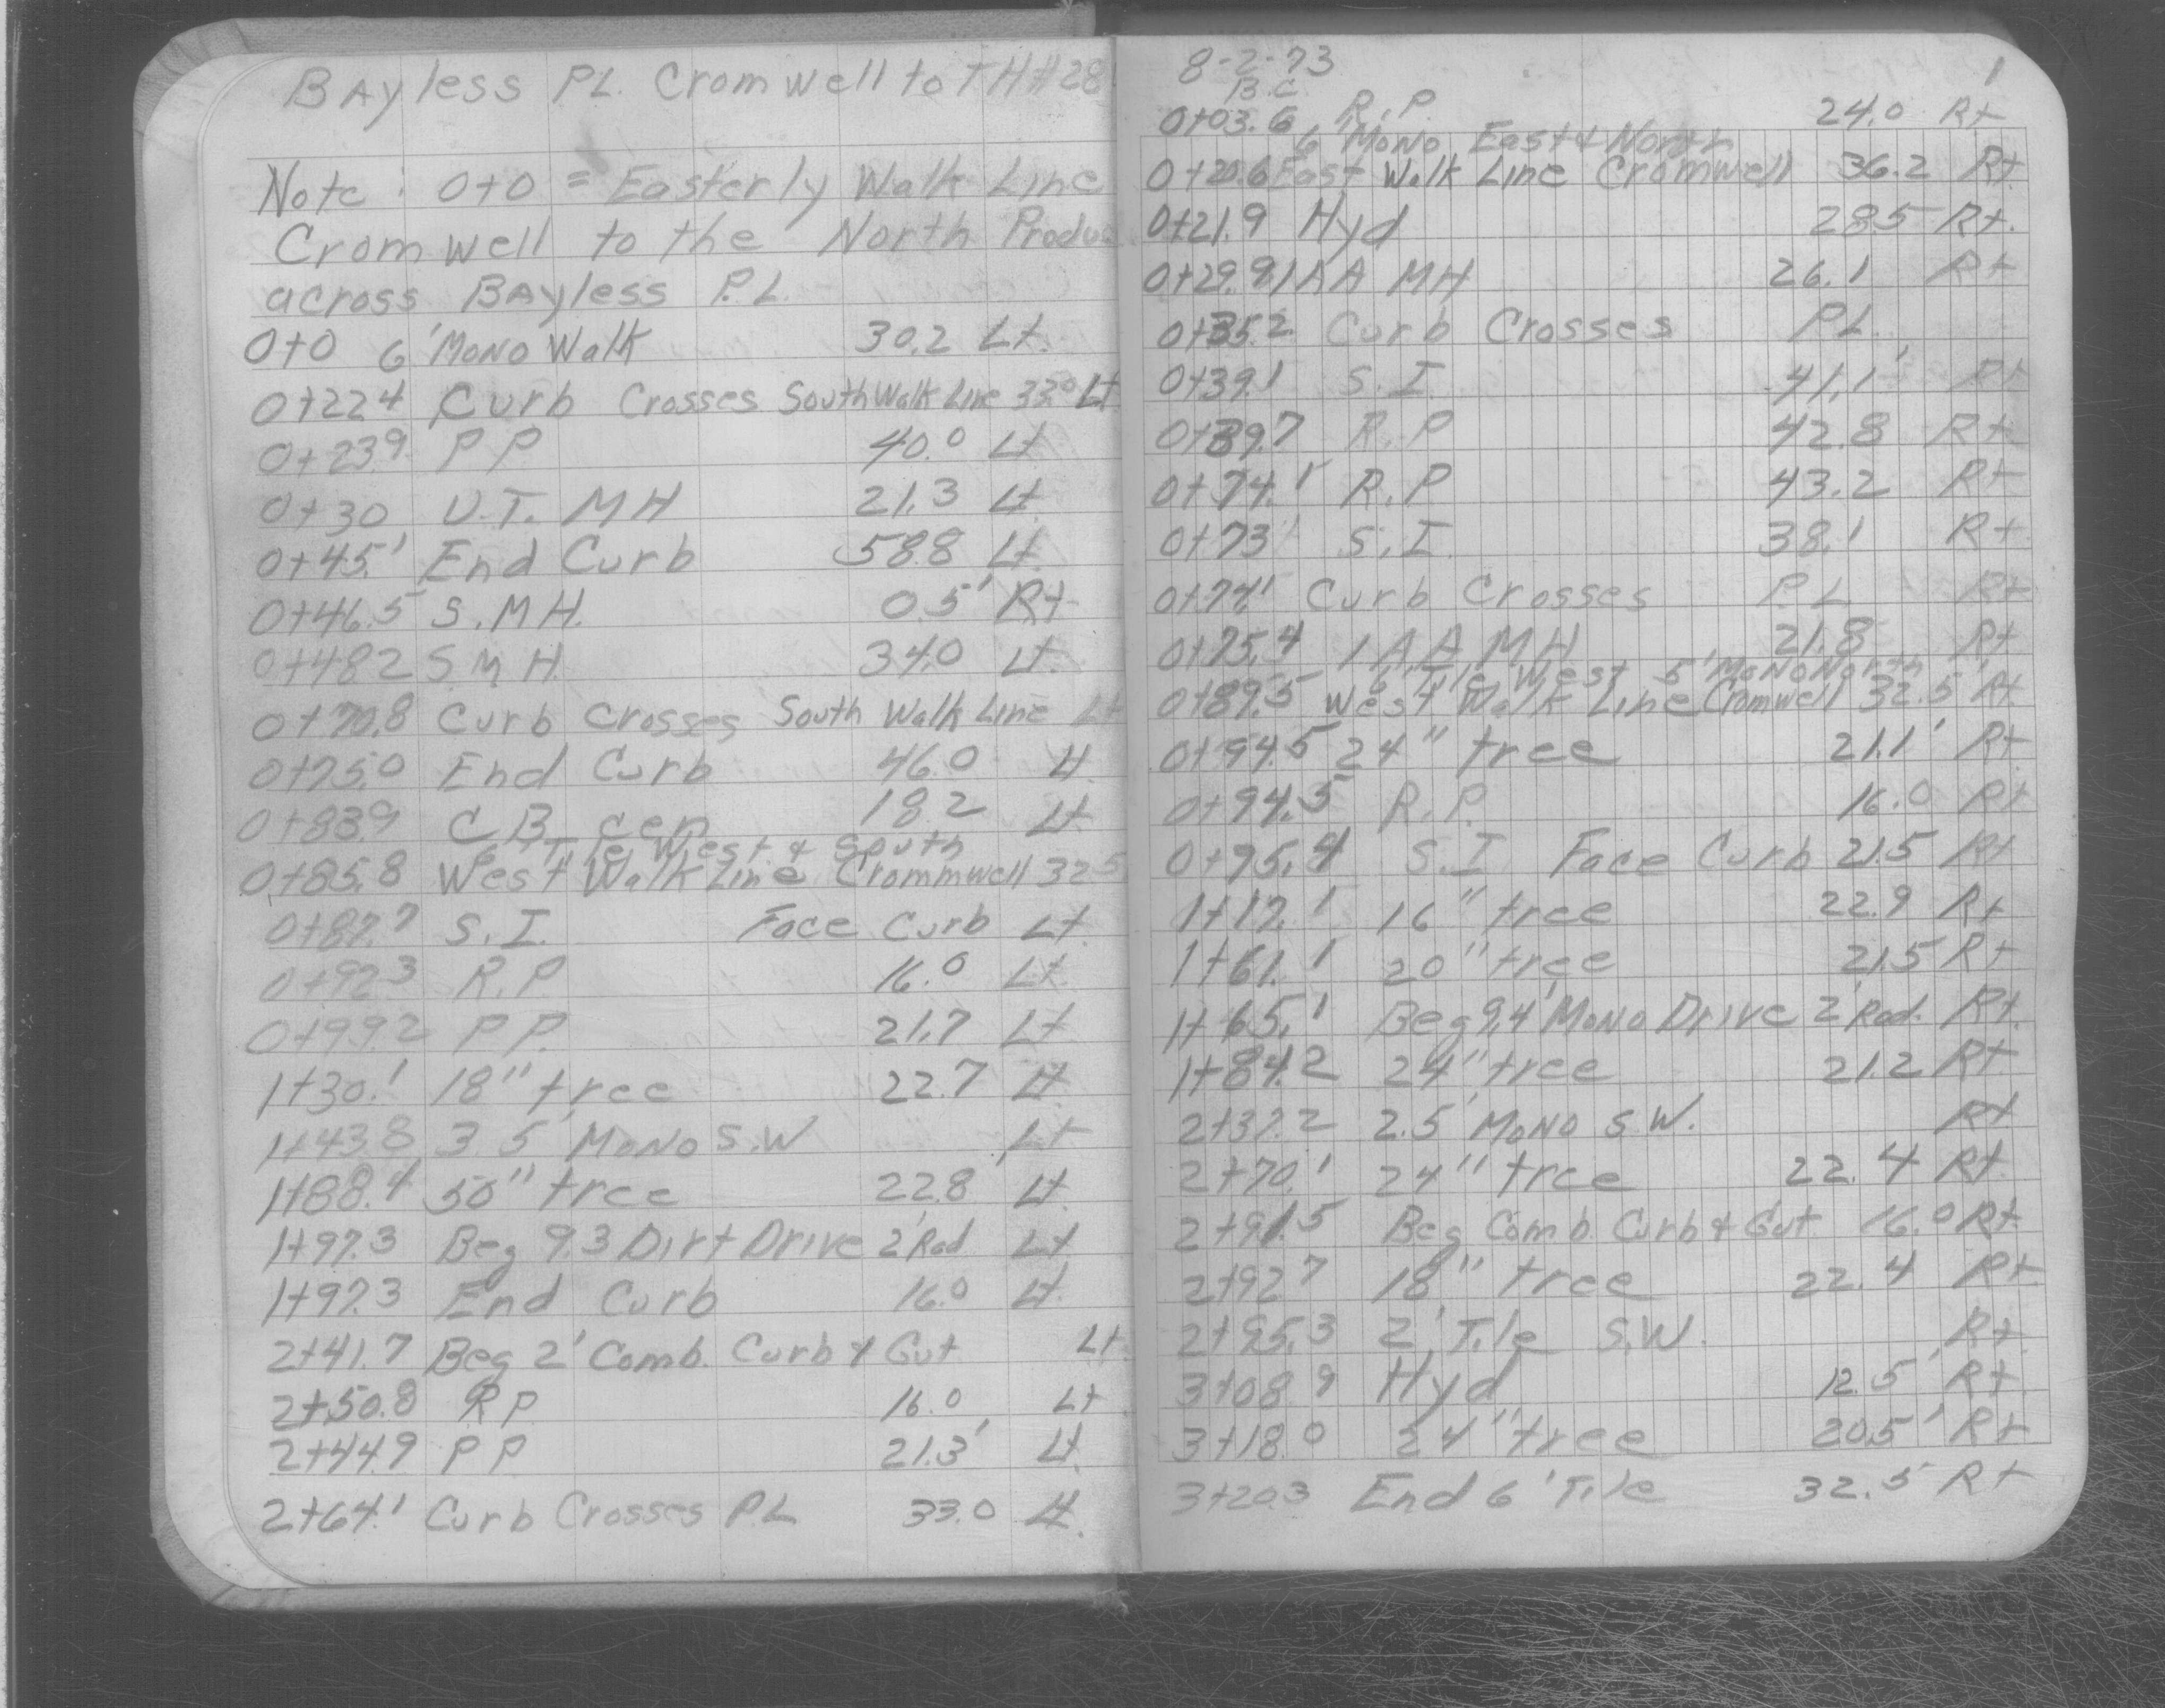 BAyless PL. Cromwell to TH#28
Note: 0+0 = Easterly Walk Line
Cromwell to the North Produc
across BAyless P.L.
0+0 6' MONO Walk 30.2 Lt.
0+22.4 Curb Crosses South Walk Line 33.0 Lt
0+23.9 P P 40.0 Lt
0+30 U.T. MH 21.3 Lt.
0+45.1 End Curb 58.8 Lt.
0+46.5 S.MH. 0.5' Rt
0+48.2 S M H 34.0 Lt.
0+70.8 Curb Crosses South Walk Line Lt
0+75.0 End Curb 46.0 Lt.
0+83.9 C B cen 18.2 Lt.
6' Tile West & South
0+85.8 West Walk Line Crommwell 32.5
0+87.7 S.I. Face Curb Lt.
0+92.3 R.P. 16.0 Lt.
0+99.2 P P. 21.7 Lt.
1+30.1 18" tree 22.7 Lt
1+43.8 3.5' MONO S.W Lt
1+88.4 30" tree 22.8' Lt.
1+97.3 Beg 9.3 Dirt Drive 2' Rad Lt
1+97.3 End Curb 16.0 Lt.
2+41.7 Beg 2' Comb. Curb & Gut Lt
2+50.8 R P 16.0 Lt
2+44.9 P P 21.3' Lt.
2+64.1 Curb Crosses P.L 33.0 Lt.
8-2-73 1
B.C.
0+03.6 R.P. 24.0 Rt
6' MONO East & North
0+20.6 East Walk Line Cromwell 36.2 Rt.
0+21.9 Hyd 28.5 Rt.
0+29.9 1AA MH 26.1 Rt
0+35.2 Curb Crosses P.L.
0+39.1 S.I. 41.1' Rt
0+39.7 R.P 42.8 Rt
0+74.1 R.P 43.2 Rt
0+73' S.I. 38.1 Rt
0+74.1 Curb Crosses P.L Rt
0+75.4 1 A A M H 21.8 Rt
6' Tile West 5' MONO North
0+89.5 West Walk Line Cromwell 32.5' Rt
0+94.5 24" tree 21.1' Rt
0+94.5 R.P. 16.0 Rt
0+95.4 S.I Face Curb 21.5 Rt
1+17.1 16" tree 22.9 Rt
1+61.1 20" tree 21.5 Rt
1+65.1 Beg 9.4' MONO Drive 2' Rad. Rt.
1+84.2 24" tree 21.2 Rt
2+37.2 2.5' MONO S.W. Rt
2+70.1 24" tree 22.4 Rt.
2+91.5 Beg Comb. Curb & Gut 16.0 Rt.
2+92.7 18" tree 22.4 Rt
2+95.3 2' Tile S.W. Rt
3+08.9 Hyd 12.5' Rt.
3+18.0 24" tree 20.5' Rt
3+20.3 End 6' Tile 32.5' Rt